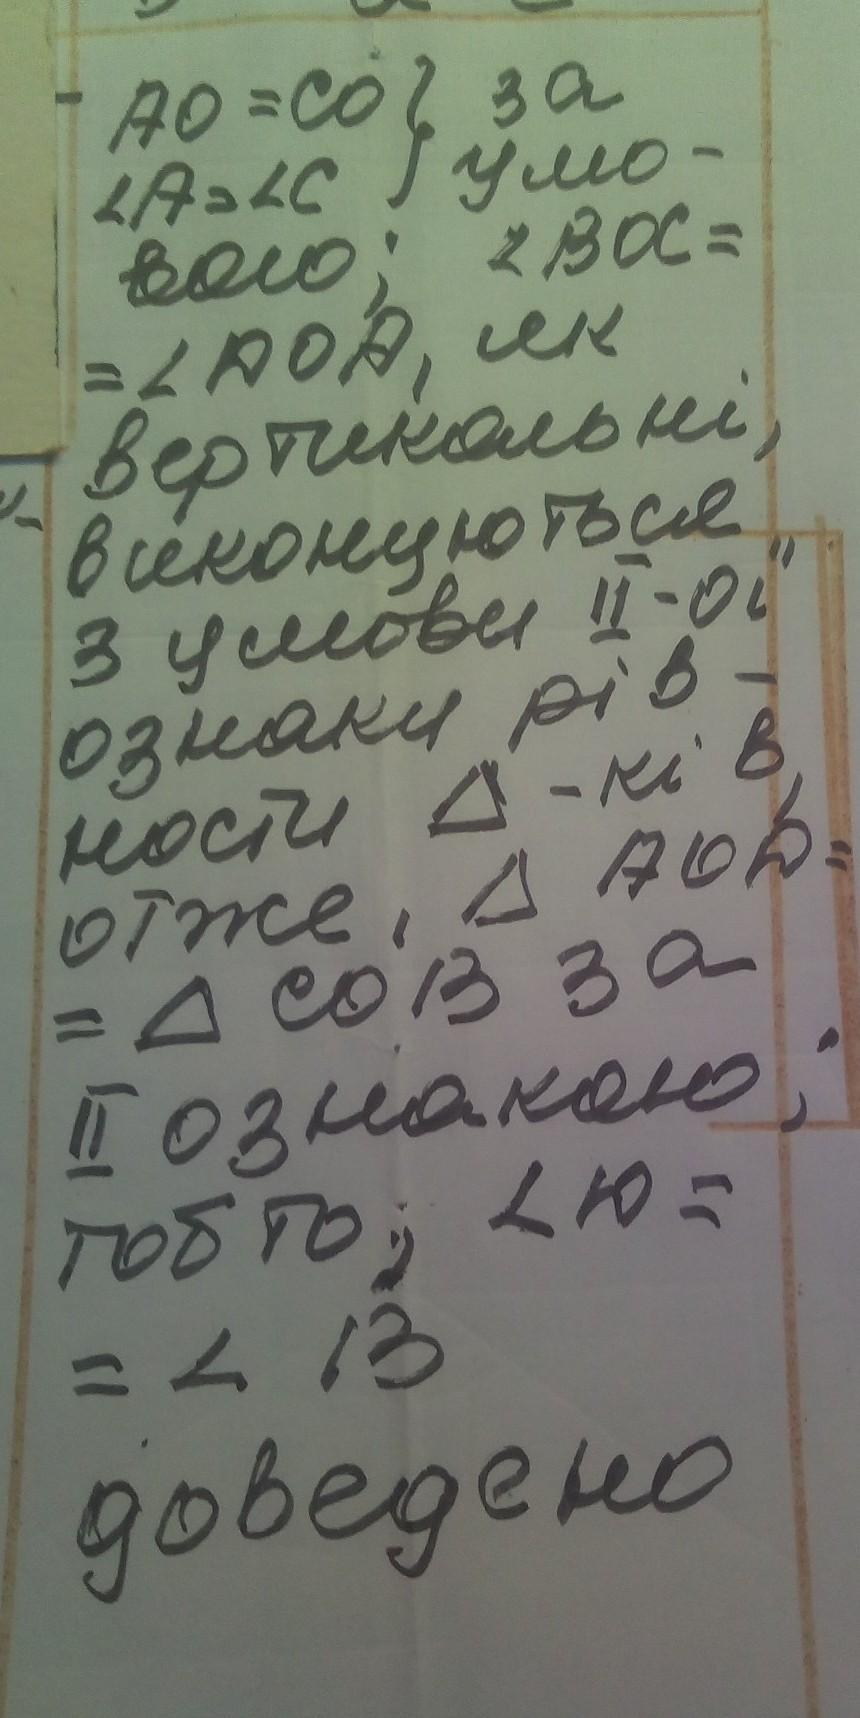 AO = CO } за
∠A = ∠C } умо-
вою; ∠BOC =
= ∠AOD, як
вертикальні,
виконуються
з умови II-ої
ознаки рів-
ности Δ-ків,
отже, Δ AOD =
= Δ COB за
II ознакою;
тобто; ∠D =
= ∠ B
доведено